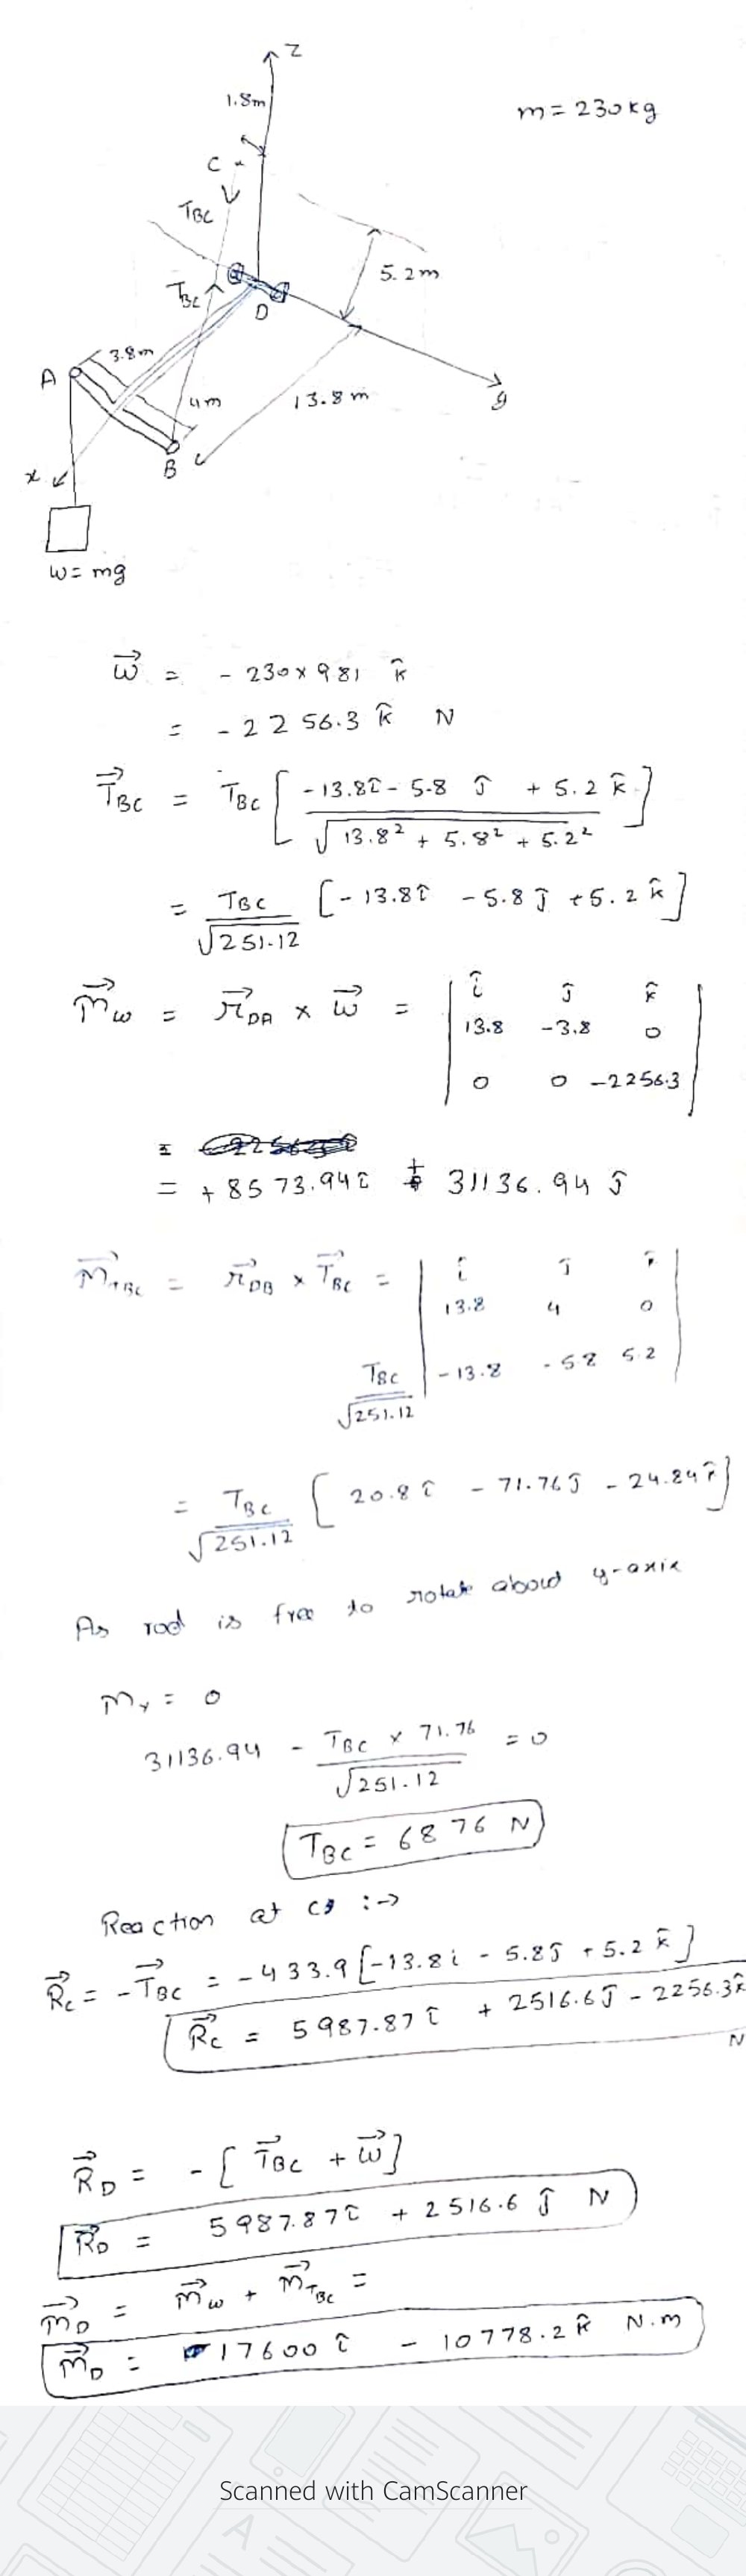 Z
1.8m
m = 230 kg
C
T_BC
5.2m
T_BC
D
3.8m
A
4m
13.8 m
y
B
x
W = mg
W⃗ = - 230 x 9.81 k̂
= - 2256.3 k̂ N
T⃗_BC = T_BC [ (-13.8î - 5.8 ĵ + 5.2 k̂) / √(13.8² + 5.8² + 5.2²) ]
= T_BC/√251.12 [-13.8î - 5.8ĵ + 5.2k̂]
M⃗_W = r⃗_DA x W⃗ = | î ĵ k̂
13.8 -3.8 0
0 0 -2256.3 |
= + 8573.94î + 31136.94 ĵ
M⃗_TBC = r⃗_DB x T⃗_BC = | î ĵ
13.8 4 0
T_BC/√251.12 | -13.8 -5.8 5.2 |
= T_BC/√251.12 [ 20.8î - 71.76ĵ - 24.84 ]
As rod is free to rotate about y-axis
M_y = 0
31136.94 - (T_BC x 71.76)/√251.12 = 0
T_BC = 6876 N
Reaction at C :→
R⃗_C = -T⃗_BC = -433.9 [-13.8i - 5.8ĵ + 5.2 k̂]
R⃗_C = 5987.87î + 2516.6ĵ - 2256.3k̂ N
R⃗_D = - [T⃗_BC + W⃗]
R⃗_D = 5987.87î + 2516.6 ĵ N
M⃗_D = M⃗_W + M⃗_TBC =
M⃗_D = 17600 î - 10778.2 k̂ N.m
Scanned with CamScanner